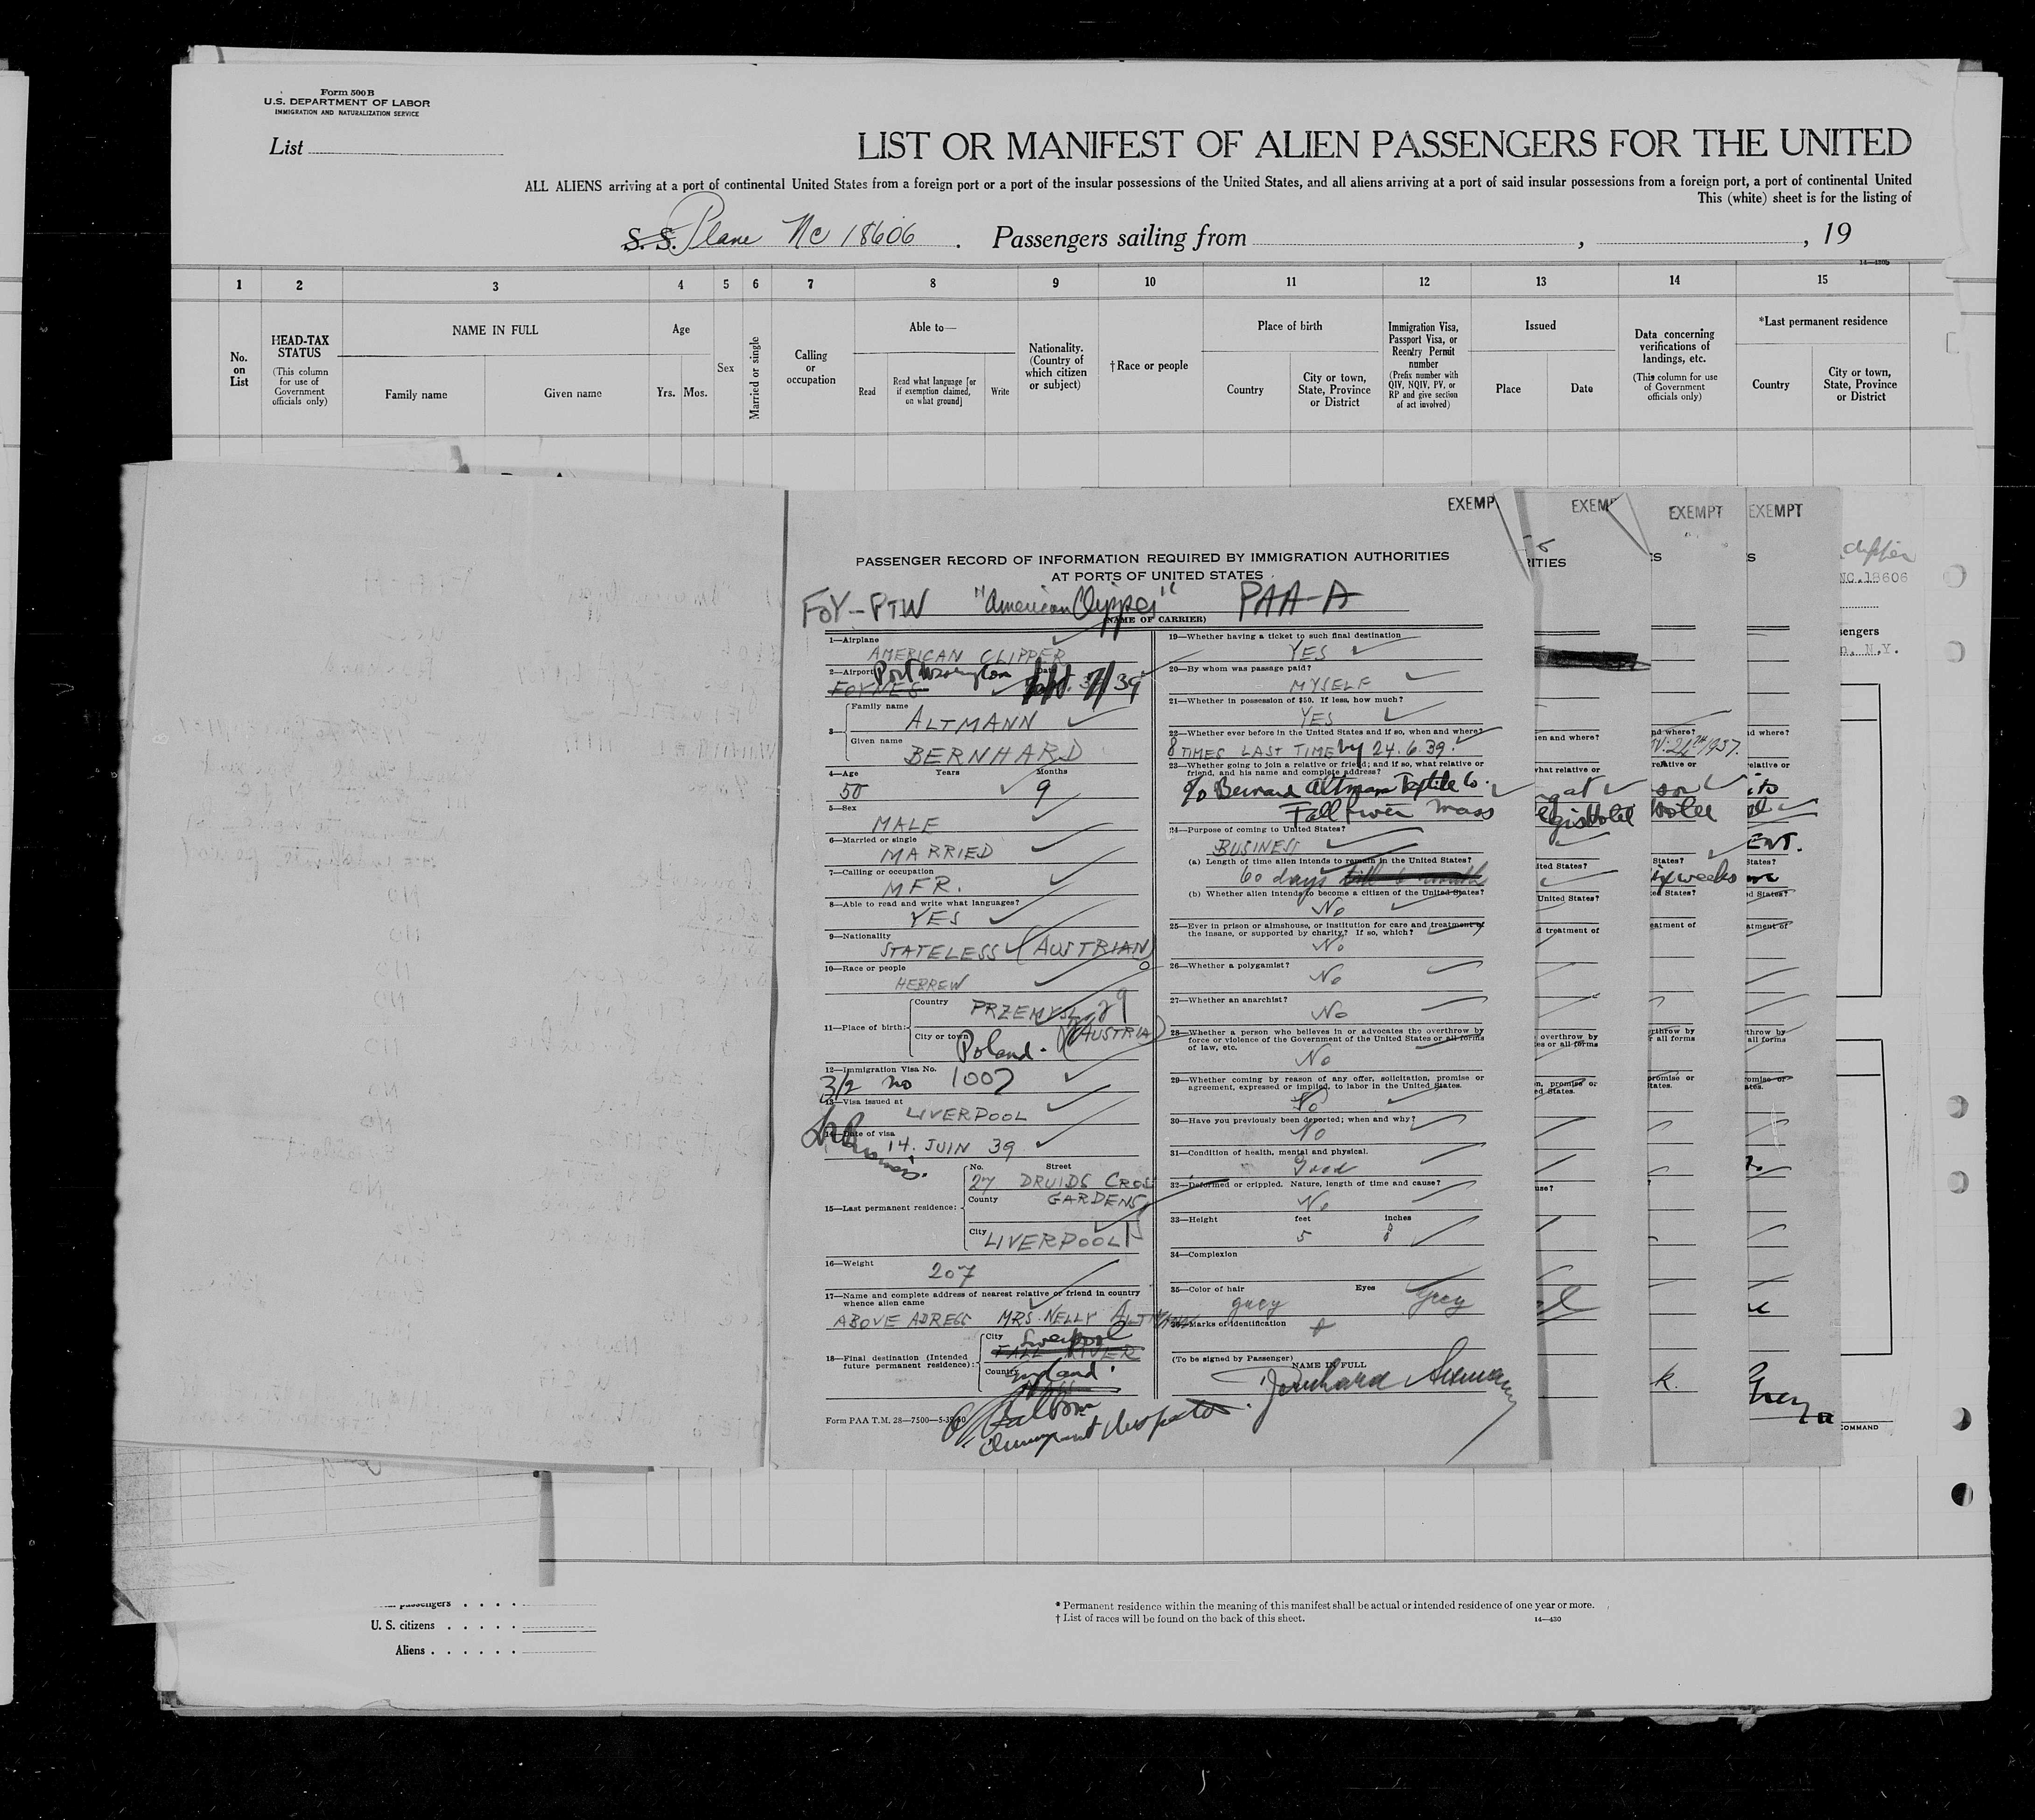 Form 500 B
U.S. DEPARTMENT OF LABOR
IMMIGRATION AND NATURALIZATION SERVICE
List
LIST OR MANIFEST OF ALIEN PASSENGERS FOR THE UNITED
ALL ALIENS arriving at a port of continental United States from a foreign port or a port of the insular possessions of the United States, and all aliens arriving at a port of said insular possessions from a foreign port, a port of continental United
This (white) sheet is for the listing of
S. S. Plane NC 18606 . Passengers sailing from , , 19
14—430b
1 2 3 4 5 6 7 8 9 10 11 12 13 14 15
No. on List
HEAD-TAX STATUS
(This column for use of Government officials only)
NAME IN FULL
Family name Given name
Age
Yrs. Mos.
Sex
Married or single
Calling or occupation
Able to—
Read Read what language [or if exemption claimed, on what ground] Write
Nationality. (Country of which citizen or subject)
†Race or people
Place of birth
Country City or town, State, Province or District
Immigration Visa, Passport Visa, or Reentry Permit number
(Prefix number with QIV, NQIV, PV, or RP and give section of act involved)
Issued
Place Date
Data concerning verifications of landings, etc.
(This column for use of Government officials only)
*Last permanent residence
Country City or town, State, Province or District
EXEMP EXEMP EXEMPT EXEMPT
PASSENGER RECORD OF INFORMATION REQUIRED BY IMMIGRATION AUTHORITIES
AT PORTS OF UNITED STATES
FOY-PTW "American Clipper" PAA-A
(NAME OF CARRIER)
1—Airplane
AMERICAN CLIPPER
2—Airport Port Washington Date
FOYNES Sept. 7/39
3—
Family name
ALTMANN
Given name
BERNHARD
4—Age Years Months
50 9
5—Sex
MALE
6—Married or single
MARRIED
7—Calling or occupation
MFR.
8—Able to read and write what languages?
YES
9—Nationality
STATELESS (AUSTRIAN)
10—Race or people
HEBREW
11—Place of birth:
Country
PRZEMYSL
City or town (AUSTRIA)
Poland.
12—Immigration Visa No.
3/2 no 1007
13—Visa issued at
LIVERPOOL
14—Date of visa
14. JUIN 39
15—Last permanent residence:
No. Street
27 DRUIDS CROSS
County GARDENS
City LIVERPOOL
16—Weight
207
17—Name and complete address of nearest relative or friend in country
whence alien came
ABOVE ADRESS MRS. NELLY ALTMANN
18—Final destination (Intended future permanent residence):
City Liverpool
FALL RIVER
Country England
Form PAA T.M. 28—7500—5-39
Immigrant Inspector.
19—Whether having a ticket to such final destination
YES
20—By whom was passage paid?
MYSELF
21—Whether in possession of $50. If less, how much?
YES
22—Whether ever before in the United States and if so, when and where?
8 TIMES LAST TIME by 24.6.39.
23—Whether going to join a relative or friend; and if so, what relative or
friend, and his name and complete address?
c/o Bernard Altmann Textile Co.
Fall River Mass
24—Purpose of coming to United States?
BUSINESS
(a) Length of time alien intends to remain in the United States?
60 days
(b) Whether alien intends to become a citizen of the United States?
No
25—Ever in prison or almshouse, or institution for care and treatment of
the insane, or supported by charity? If so, which?
No
26—Whether a polygamist?
No
27—Whether an anarchist?
No
28—Whether a person who believes in or advocates the overthrow by
force or violence of the Government of the United States or all forms
of law, etc.
No
29—Whether coming by reason of any offer, solicitation, promise or
agreement, expressed or implied, to labor in the United States.
No
30—Have you previously been deported; when and why?
No
31—Condition of health, mental and physical.
Good
32—Deformed or crippled. Nature, length of time and cause?
No
33—Height feet inches
5 8
34—Complexion
35—Color of hair Eyes
grey Grey
36—Marks of identification
(To be signed by Passenger)
NAME IN FULL
Bernhard Altmann
NC.18606
COMMAND
U. S. citizens
Aliens
* Permanent residence within the meaning of this manifest shall be actual or intended residence of one year or more.
† List of races will be found on the back of this sheet.
14—430